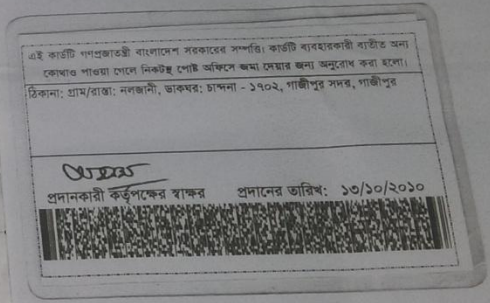 এই কার্ডটি গণপ্রজাতন্ত্রী বাংলাদেশ সরকারের সম্পত্তি। কার্ডটি ব্যবহারকারী ব্যতীত অন্য
কোথাও পাওয়া গেলে নিকটস্থ পোষ্ট অফিসে জমা দেয়ার জন্য অনুরোধ করা হলো।
ঠিকানা: গ্রাম/রাস্তা: নলজানী, ডাকঘর: চান্দনা - ১৭০২, গাজীপুর সদর, গাজীপুর
প্রদানকারী কর্তৃপক্ষের স্বাক্ষর প্রদানের তারিখ: ১৩/১০/২০১০